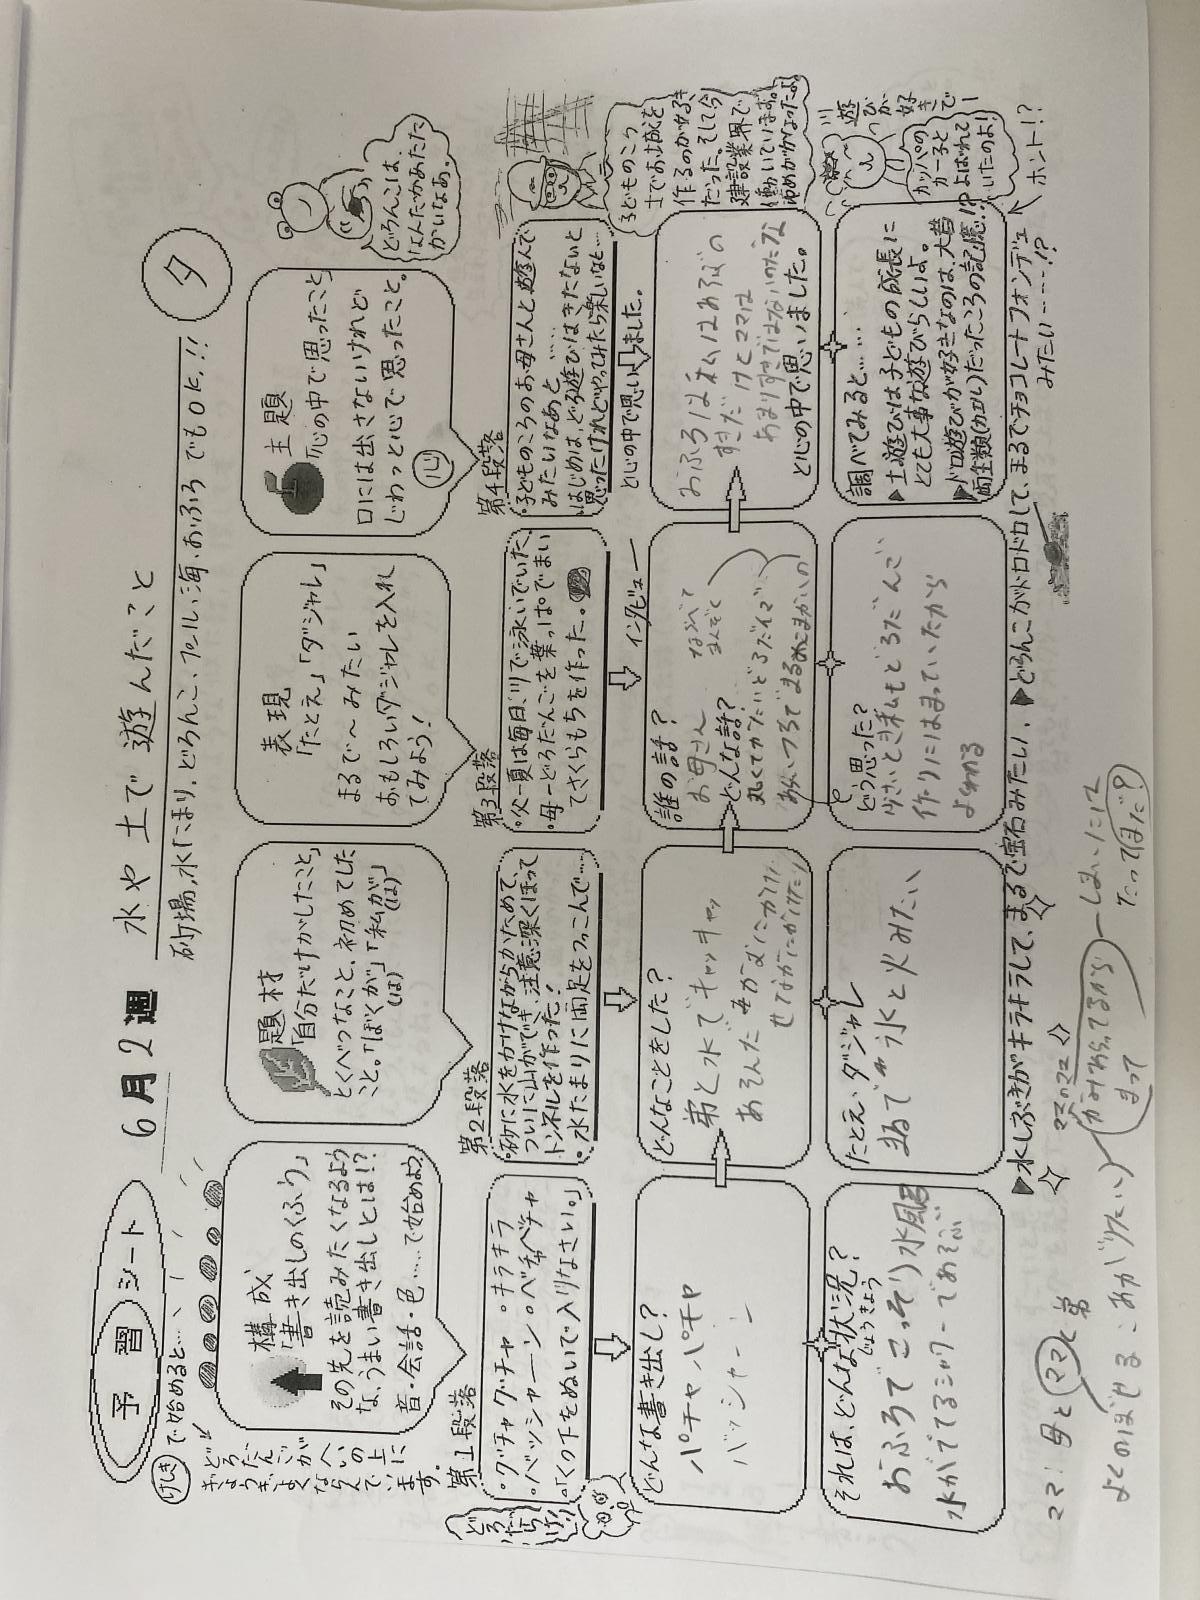 予習シート
6月2週
水や土で遊んだこと
夕
砂場、水たまり、どろんこ、プール、海、おふろでもOK!!
けしきで始めると…
どろだんごが
ぎょうぎよく
へいの上に
ならんでいます。
構成
「書き出しのくふう」
その先を読みたくなるよう
な、うまい書き出しとは!?
音・会話・色……で始めよう
題材
「自分だけがしたこと」
とくべつなこと、初めてした
こと。「ぼくが」「私が」
(は) (は)
表現
「たとえ」「ダジャレ」
まるで〜みたい
おもしろいダジャレを入れ
てみよう!
主題
「心の中で思ったこと」
口には出さないけれど
じわっと心で思ったこと。
心
どろんこは、
なんだかあたた
かいなあ。
第1段落
・グチャグチャ ・キラキラ
・バッシャーン ・ベチャベチャ
・「くつ下をぬいで入りなさい。」
どろだらけ!
第2段落
・砂に水をかけながらかためて、
ついに山ができ、注意深くほって
トンネルを作った!
・水たまりに両足をつっこんで…
第3段落
・父ー夏は毎日、川で泳いでいた。
・母ーどろだんごを葉っぱでまい
てさくらもちを作った。
インタビュー
第4段落
・子どものころのお母さんと遊んで
みたいなあと……
・はじめは、どろ遊びはきたないと
思ったけれどやってみたら楽しいなと…
と心の中で思いました。
子どものころ、
土でお城を
作るのが好き
だった。そして今
建設業界で
働いています。
ゆめがかなったよ。
どんな書き出し?
パチャパチャ
バッシャーン
どんなことをした?
弟と水でキャッキャッ
あそんだ
誰の話?
お母さん
どんな話?
ならべて
まんぞく
と心の中で思いました。
おふろは私はあそぶの
すきだけどママは
あまりすきではないのだな
それは、どんな状況?
じょうきょう
おふろでこっそり水風呂
水がでてるシャワーであそぶ
たとえ、ダジャレ
まるで 氷と火みたい
どう思った?
小さいとき私もどろだんご
作りにはまっていたから
よくわかる
調べてみると……
▶土遊びは子どもの成長に
とても大事な遊びらしいよ。
▶ドロ遊びが好きなのは、大昔
両生類(カエル)だったころの記憶!?
川遊びが
好きで
カッパの
カー子と
よばれて
いたのよ!
ホント!?
▶水しぶきがキラキラして、まるで宝石みたい。▶どろんこがドロドロして、まるでチョコレートフォンデュ
みたい……!?
ママ! 母と ママと弟
よくのぼせる
まって